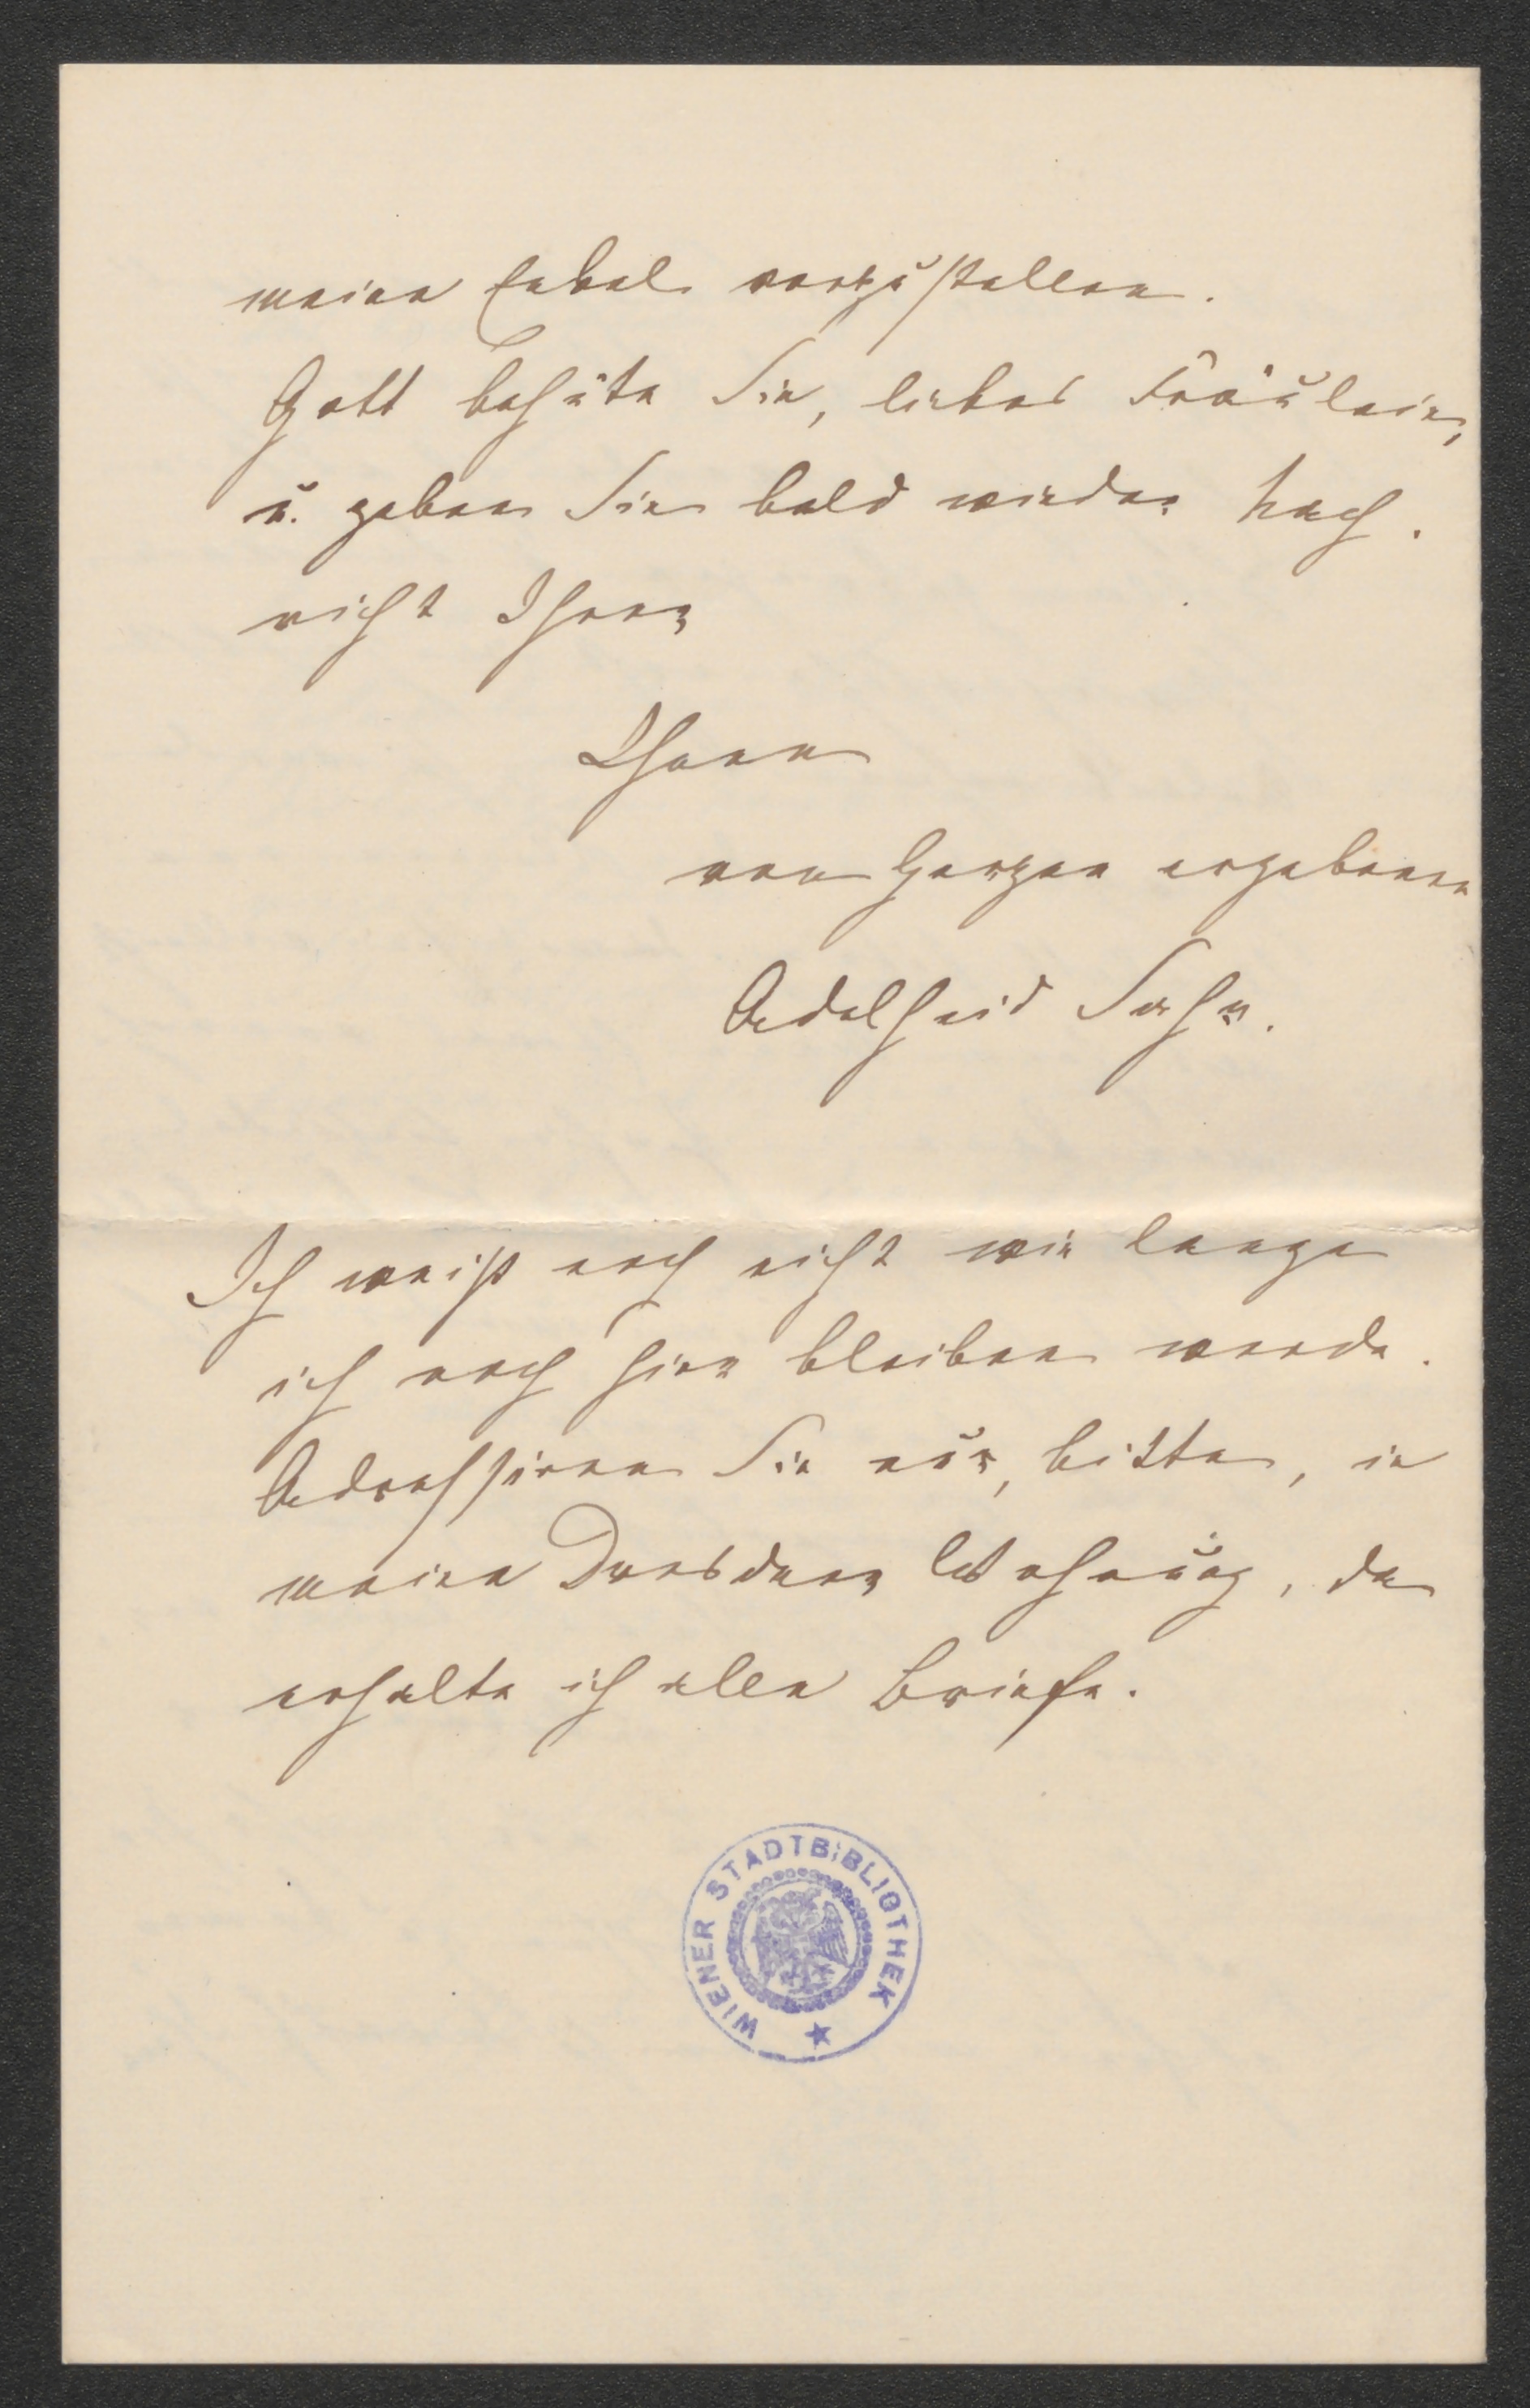 meine Enkel vorzustellen.
Gott behüte Sie, liebes Fräulein,
u. geben Sie bald wieder Nach-
richt Ihrer
Ihnen
von Herzen ergebenen
Adelheid
Ich weiß noch nicht wie lange
ich noch hier bleiben werde.
Adressiren Sie nur, bitte, in
meine Dresdner Wohnung, da
erhalte ich alle Briefe.
WIENER STADTBIBLIOTHEK